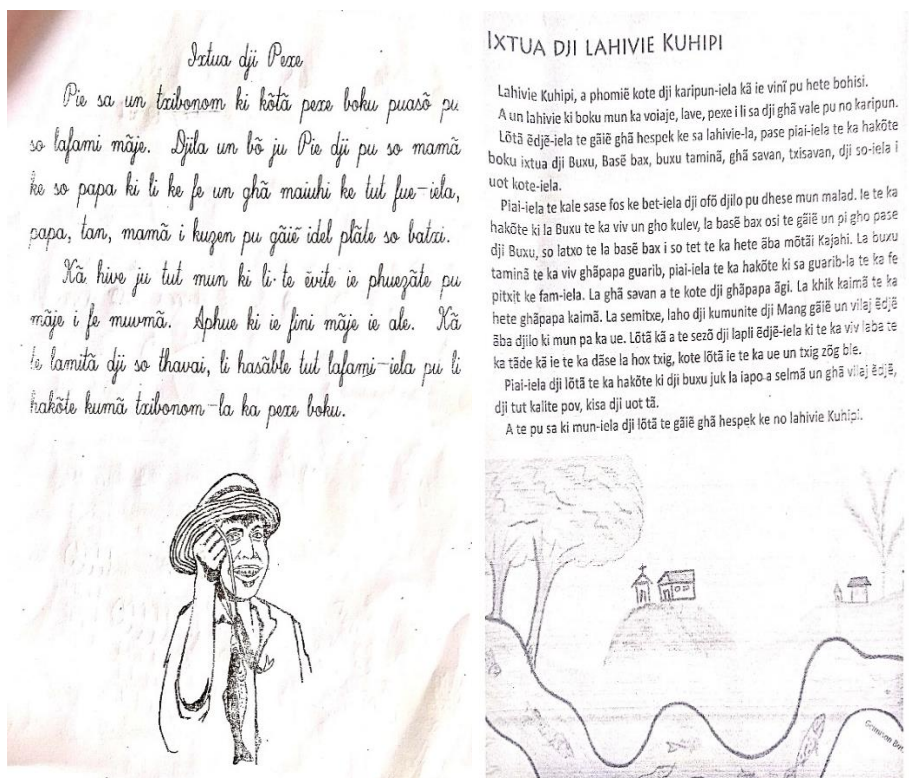 Ixtua dji Pexe
Pie sa un txibonom ki kõtã pexe boku puasõ pu
so lafami mãje. Djila un bõ ju Pie dji pu so mamã
ke so papa ki li ke fe un ghã maiuhi ke tut fue-iela,
papa, tan, mamã i kuzen pu gãiẽ idel plãte so batxi.
Kã hive ju tut mun ki li te ẽvite ie phuezãte pu
mãje i fe muvmã. Aphue ki ie fini mãje ie ale. Kã
te lamitã dji so thavai, li hasãble tut lafami-iela pu li
hakõte kumã txibonom-la ka pexe boku.
IXTUA DJI LAHIVIE KUHIPI
Lahivie Kuhipi, a phomiẽ kote dji karipun-iela kã ie vinĩ pu hete bohisi.
A un lahivie ki boku mun ka voiaje, lave, pexe i li sa dji ghã vale pu no karipun.
Lõtã ẽdjẽ-iela te gãiẽ ghã hespek ke sa lahivie-la, pase piai-iela te ka hakõte
boku ixtua dji Buxu, Basẽ bax, buxu taminã, ghã savan, txisavan, dji so-iela i
uot kote-iela.
Piai-iela te kale sase fos ke bet-iela dji ofõ djilo pu dhese mun malad. Ie te ka
hakõte ki la Buxu te ka viv un gho kulev, la basẽ bax osi te gãiẽ un pi gho pase
dji Buxu, so latxo te la basẽ bax i so tet te ka hete ãba mõtãi Kajahi. La buxu
taminã te ka viv ghãpapa guarib, piai-iela te ka hakõte ki sa guarib-la te ka fe
pitxit ke fam-iela. La ghã savan a te kote dji ghãpapa ãgi. La khik kaimã te ka
hete ghãpapa kaimã. La semitxe, laho dji kumunite dji Mang gãiẽ un vilaj ẽdjẽ
ãba djilo ki mun pa ka ue. Lõtã kã a te sezõ dji lapli ẽdjẽ-iela ki te ka viv laba te
ka tãde kã ie te ka dãse la hox txig, kote lõtã ie te ka ue un txig zõg ble.
Piai-iela dji lõtã te ka hakõte ki dji buxu juk la iapo a selmã un ghã vilaj ẽdjẽ,
dji tut kalite pov, kisa dji uot tã.
A te pu sa ki mun-iela dji lõtã te gãiẽ ghã hespek ke no lahivie Kuhipi.